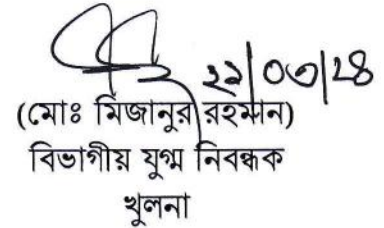 ২১|০৩|২৪
(মোঃ মিজানুর রহমান)
বিভাগীয় যুগ্ম নিবন্ধক
খুলনা